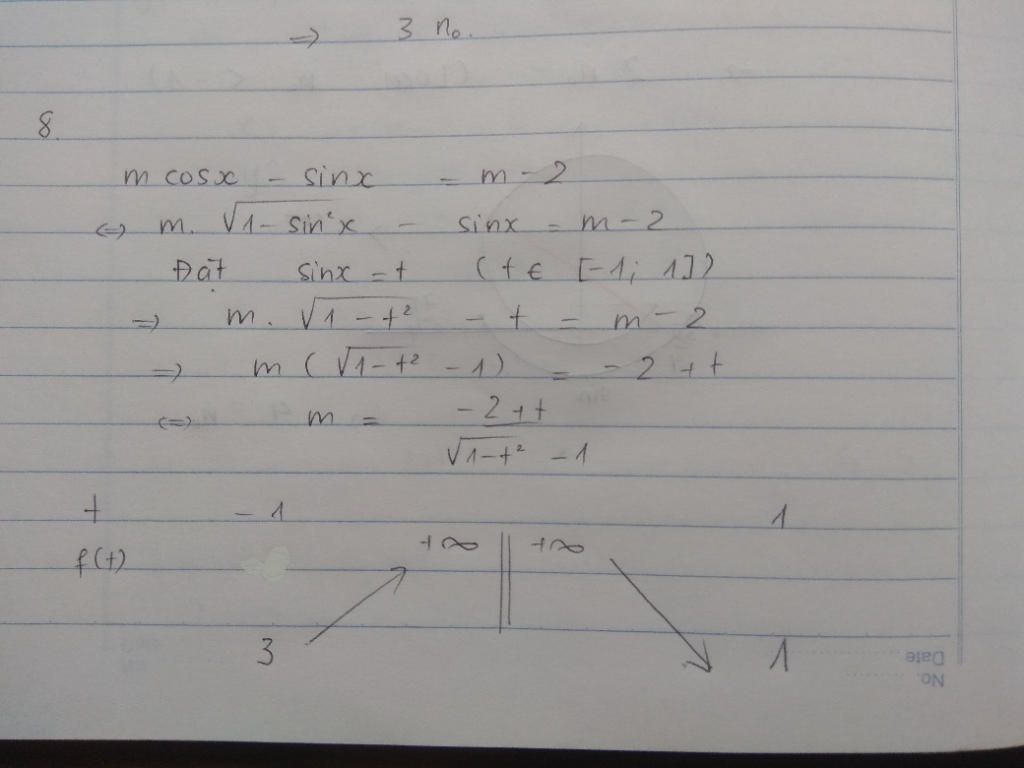 ⇒ 3 no.
8.
m cosx - sinx = m - 2
⇔ m. √(1 - sin²x) - sinx = m - 2
Đặt sinx = t (t ∈ [-1; 1])
⇒ m. √(1 - t²) - t = m - 2
⇒ m (√(1-t²) - 1) = -2 + t
⇔ m = (-2 + t)/(√(1-t²) - 1)
t -1 1
f(t) +∞ || +∞
3 1
Date
No.